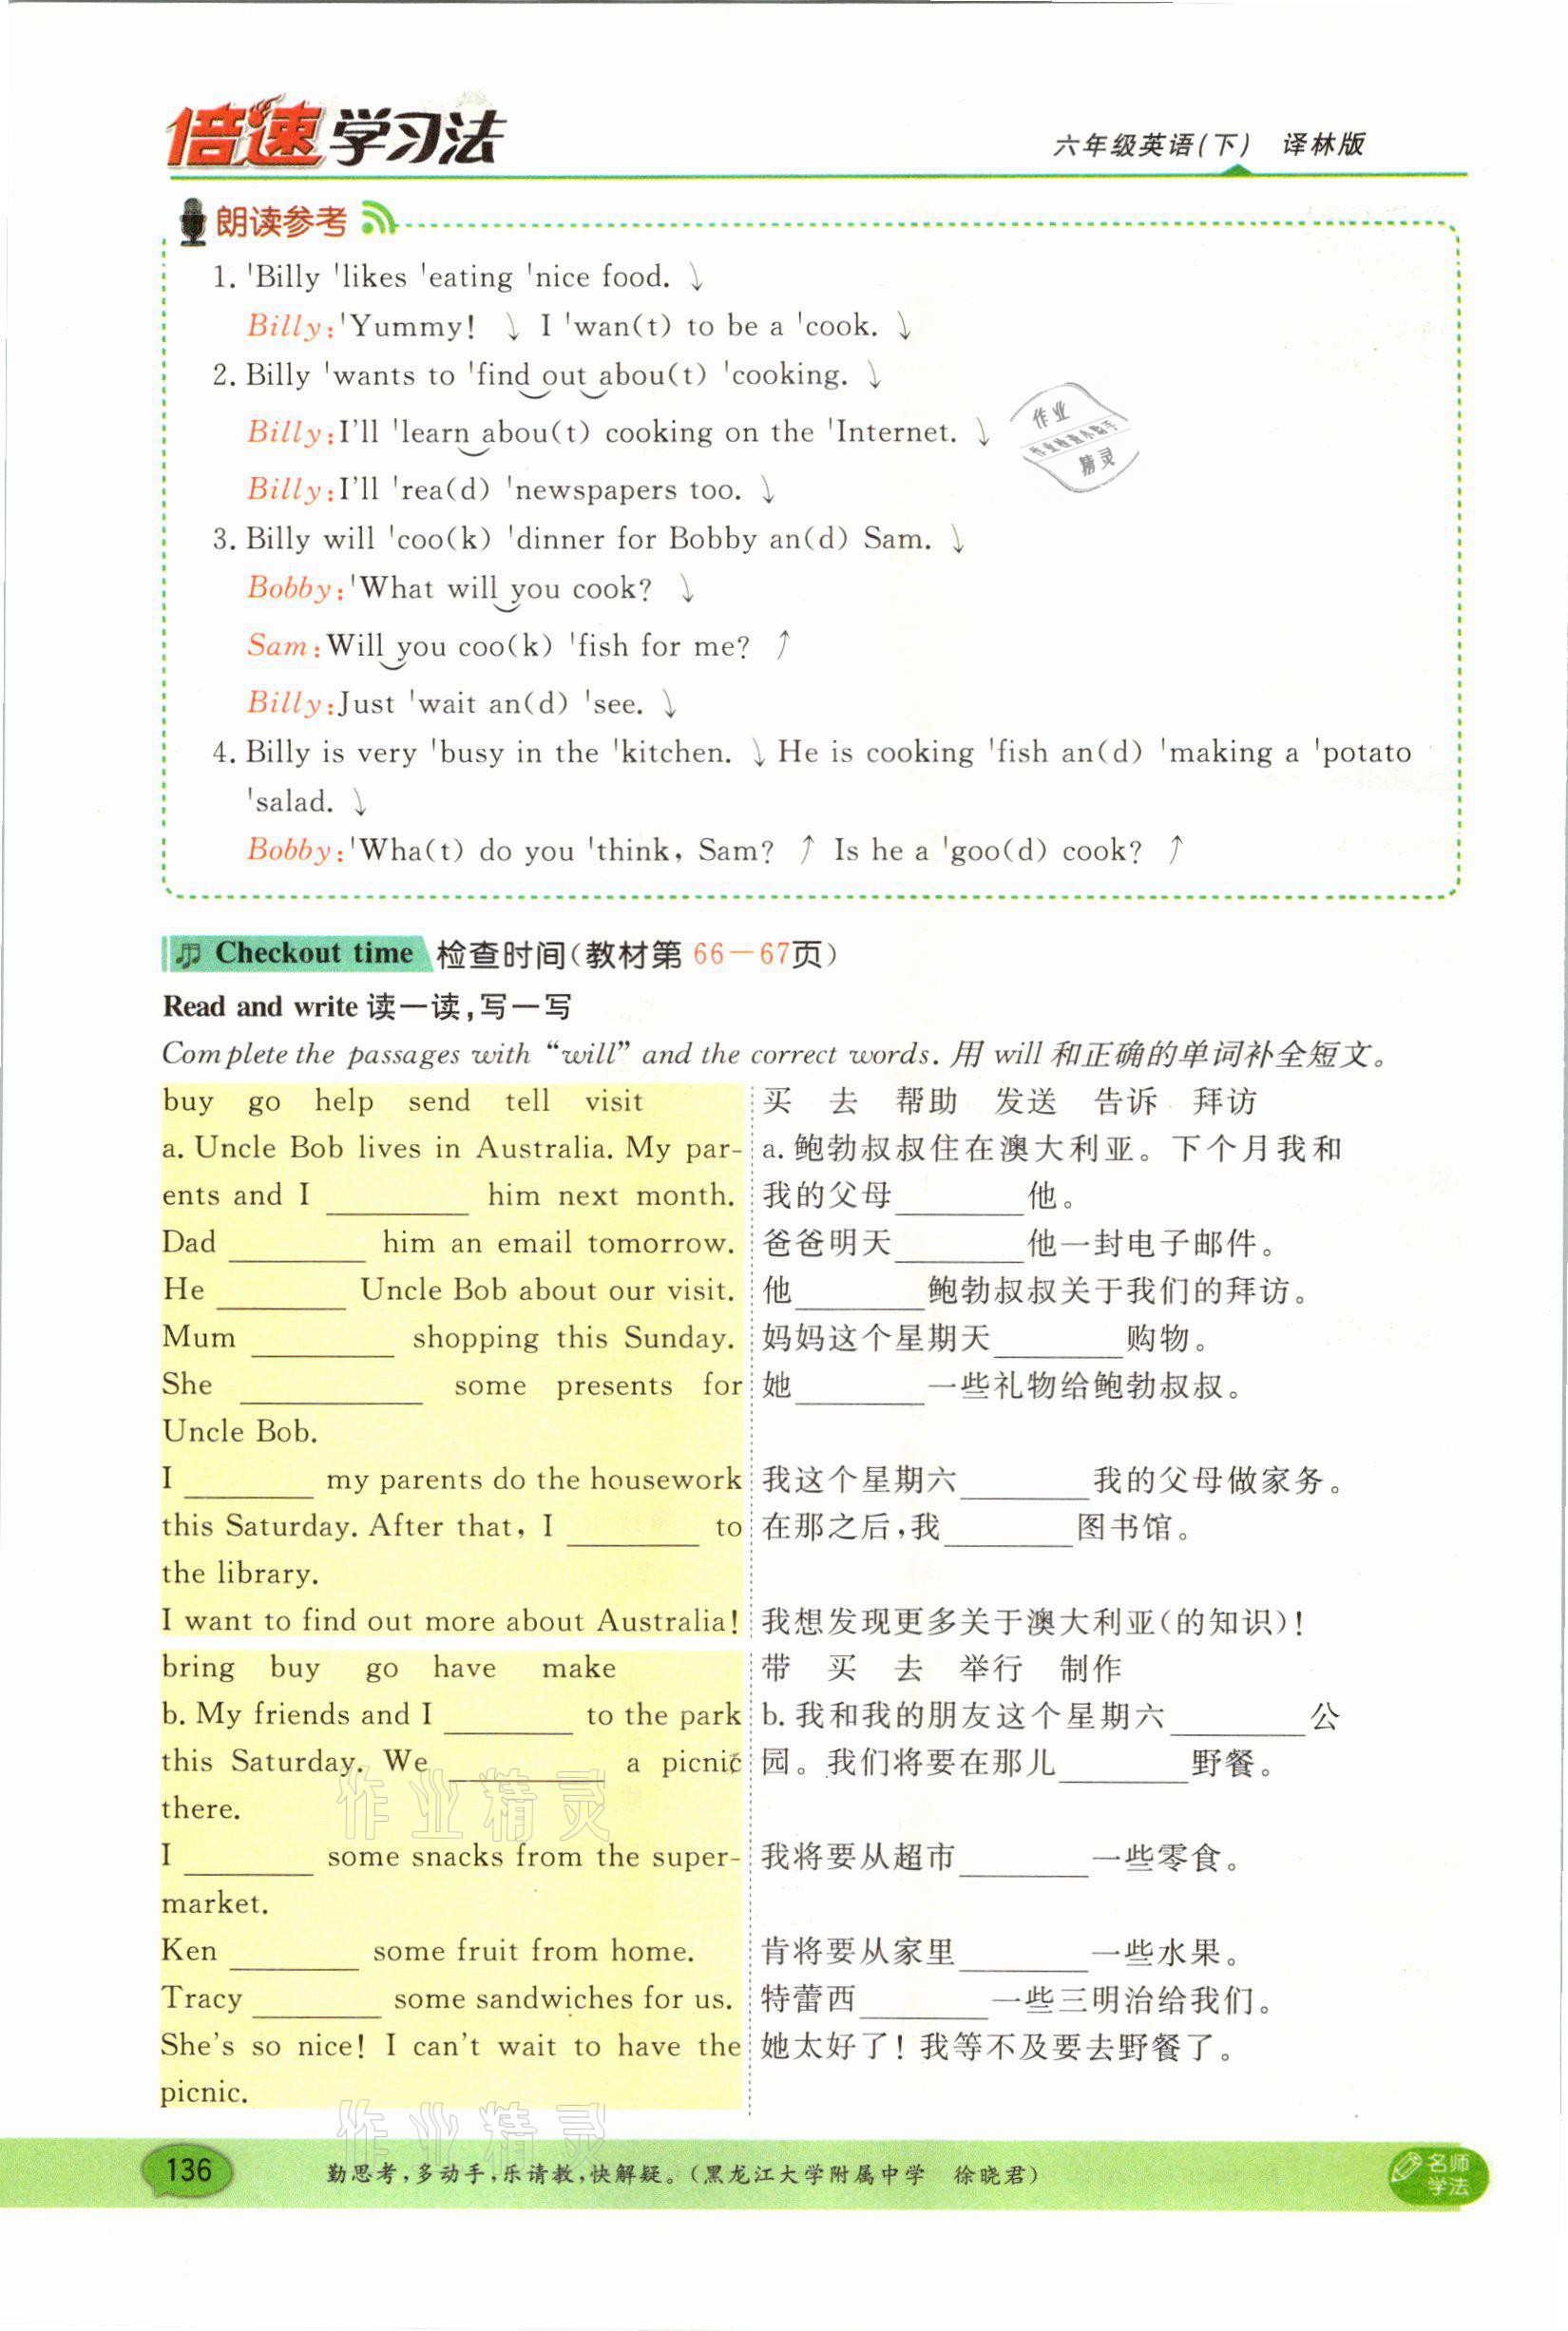 倍速学习法
六年级英语(下) 译林版
朗读参考
1. 'Billy 'likes 'eating 'nice food. ↘
Billy:'Yummy! ↘ I 'wan(t) to be a 'cook. ↘
2. Billy 'wants to 'find out abou(t) 'cooking. ↘
Billy:I'll 'learn abou(t) cooking on the 'Internet. ↘
Billy:I'll 'rea(d) 'newspapers too. ↘
3. Billy will 'coo(k) 'dinner for Bobby an(d) Sam. ↘
Bobby:'What will you cook? ↘
Sam:Will you coo(k) 'fish for me? ↗
Billy:Just 'wait an(d) 'see. ↘
4. Billy is very 'busy in the 'kitchen. ↘ He is cooking 'fish an(d) 'making a 'potato
'salad. ↘
Bobby:'Wha(t) do you 'think, Sam? ↗ Is he a 'goo(d) cook? ↗
作业
作业检查小助手
精灵
Checkout time 检查时间(教材第 66-67页)
Read and write 读一读,写一写
Complete the passages with “will” and the correct words. 用 will 和正确的单词补全短文。
buy go help send tell visit
a. Uncle Bob lives in Australia. My par-
ents and I ________ him next month.
Dad ________ him an email tomorrow.
He ________ Uncle Bob about our visit.
Mum ________ shopping this Sunday.
She ________ some presents for
Uncle Bob.
I ________ my parents do the housework
this Saturday. After that, I ________ to
the library.
I want to find out more about Australia!
bring buy go have make
b. My friends and I ________ to the park
this Saturday. We ________ a picnic
there.
I ________ some snacks from the super-
market.
Ken ________ some fruit from home.
Tracy ________ some sandwiches for us.
She's so nice! I can't wait to have the
picnic.
买 去 帮助 发送 告诉 拜访
a. 鲍勃叔叔住在澳大利亚。下个月我和
我的父母________他。
爸爸明天________他一封电子邮件。
他________鲍勃叔叔关于我们的拜访。
妈妈这个星期天________购物。
她________一些礼物给鲍勃叔叔。
我这个星期六________我的父母做家务。
在那之后,我________图书馆。
我想发现更多关于澳大利亚(的知识)!
带 买 去 举行 制作
b. 我和我的朋友这个星期六________公
园。我们将要在那儿________野餐。
我将要从超市________一些零食。
肯将要从家里________一些水果。
特蕾西________一些三明治给我们。
她太好了! 我等不及要去野餐了。
作业精灵
作业精灵
136
勤思考,多动手,乐请教,快解疑。(黑龙江大学附属中学 徐晓君)
名师
学法